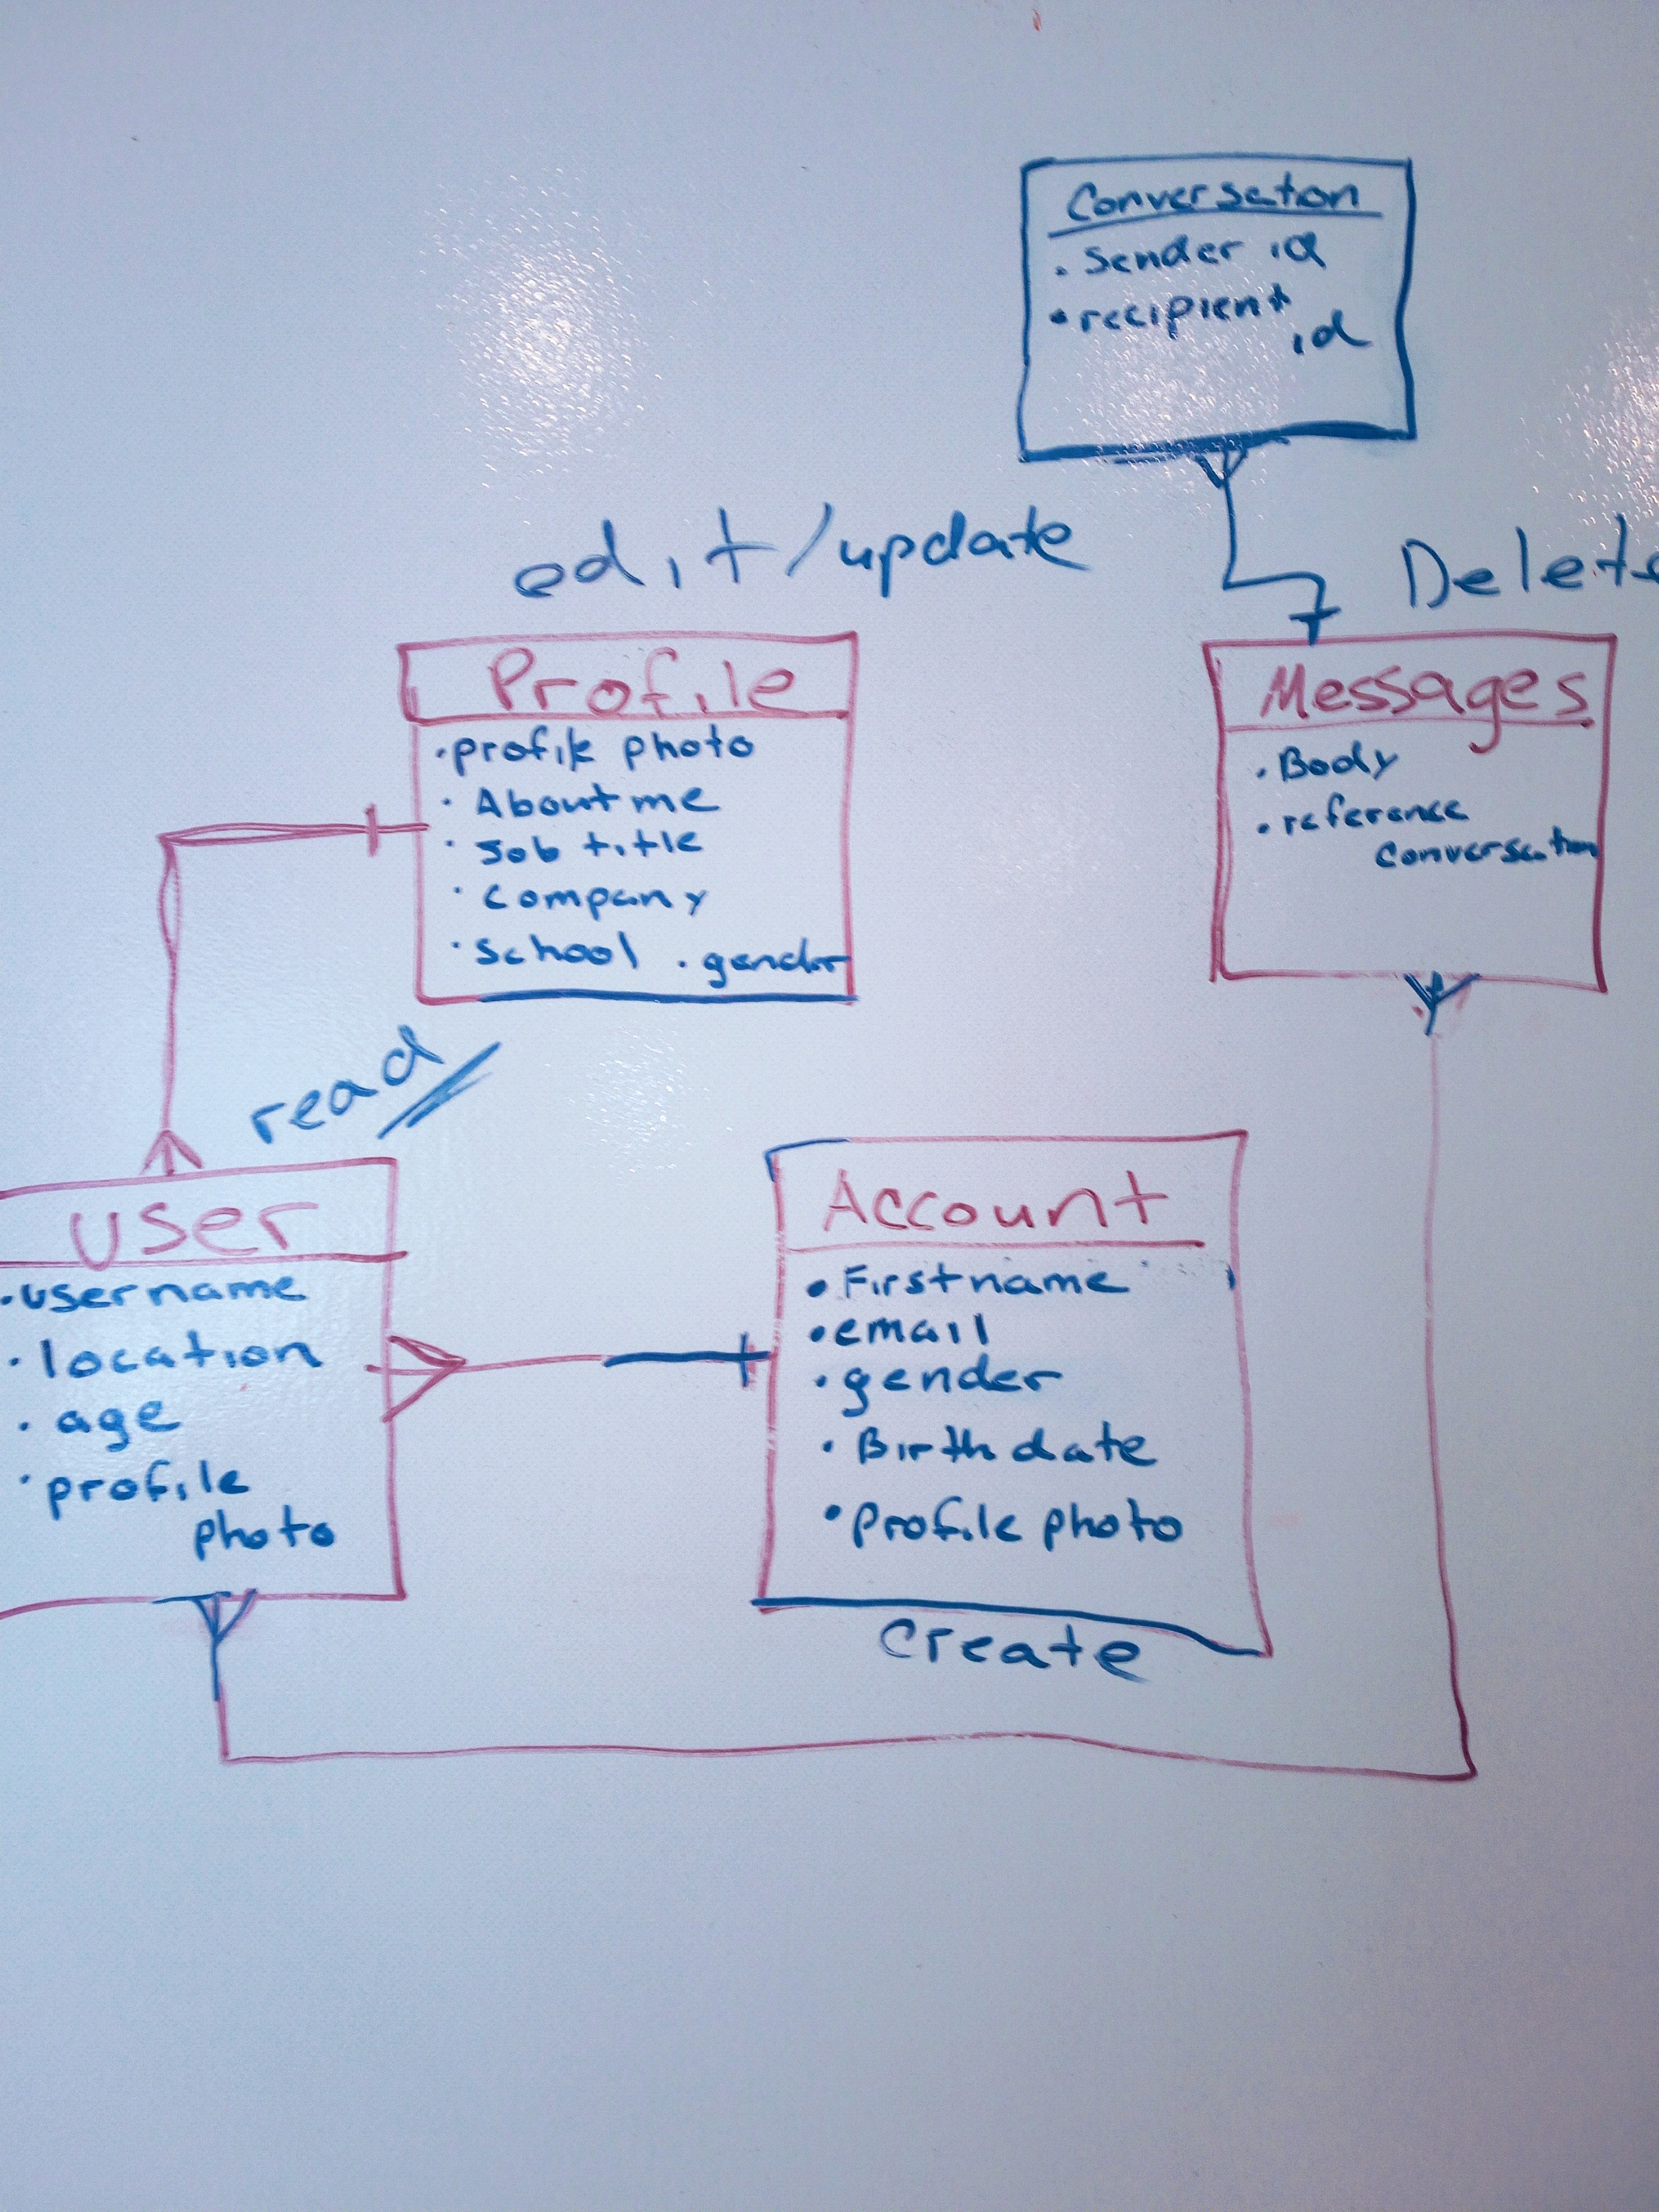 Conversation
. sender id
• recipient
id
edit/update
Delete
Profile
• profile photo
• About me
• Job title
• Company
• School . gender
Messages
• Body
• reference
Conversation
read
User
• username
• location
• age
• profile
photo
Account
• First name
• email
• gender
• Birth date
• Profile photo
Create